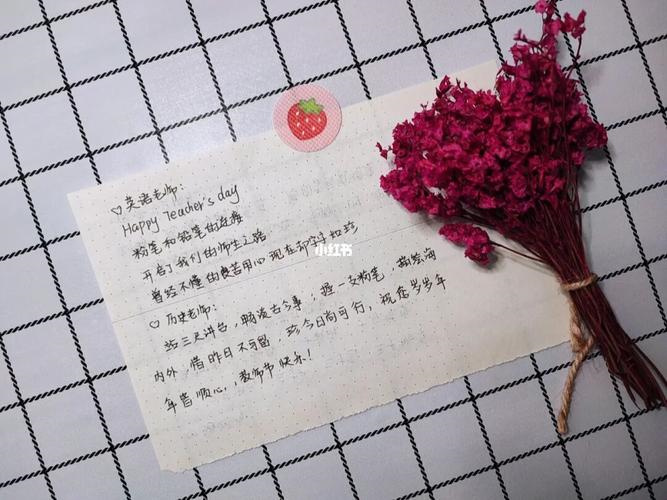 ♡ 英语老师:
Happy Teacher's day
粉笔和铅笔的邂逅
开启了我们的师生之路
曾经不懂的良苦用心 现在却学 知珍
小红书
♡ 历史老师:
站三尺讲台,畅谈古今事;握一支粉笔,萌慧海
内外,惜昨日不可留,珍今日尚可行,祝您岁岁年
年皆顺心,教师节快乐!